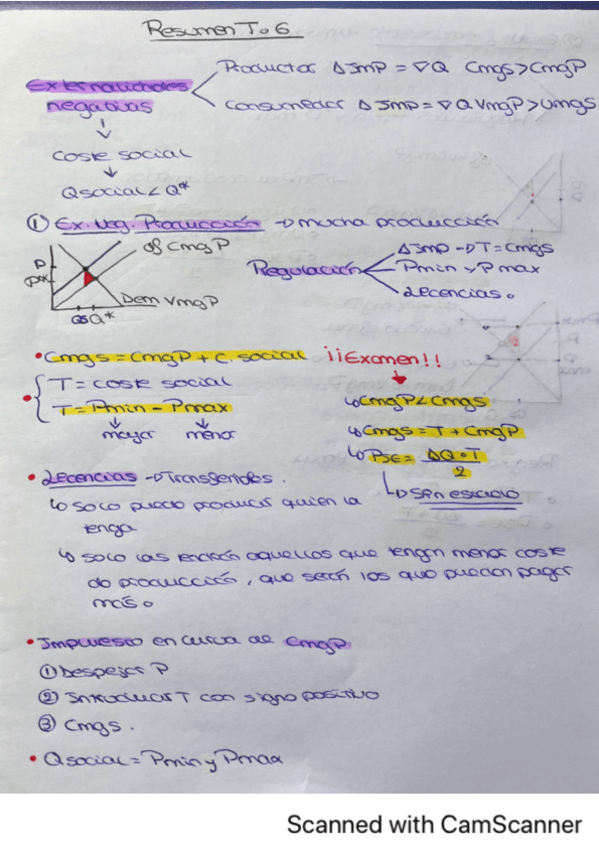 Resumen T.6
Externalidades negativas
Productor ΔImp = ∇Q Cmgs > CmgP
Consumidor ΔImp = ∇Q VmgP > Vmgs
↓
Coste social
↓
Qsocial < Q*
① Ex. Neg. Producción → mucha producción
Of CmgP
P
Dem VmgP
Qs Q*
Regulación
ΔImp → T = Cmgs
Pmin y Pmax
Licencias.
• Cmgs = CmgP + C. social
¡¡Examen!!
• T = coste social
T = Pmin - Pmax
mayor menor
↳ CmgP < Cmgs
↳ Cmgs = T + CmgP
↳ PSE = ΔQ · T
2
↳ SPN estado
• Licencias → Transferibles.
↳ Solo puede producir quien la
tenga
↳ Solo las tendrán aquellos que tengan menor coste
de producción, que serán los que puedan pagar
más.
• Impuesto en curva de CmgP
① Despejar P
② Introducir T con signo positivo
③ Cmgs.
• Qsocial = Pmin y Pmax
Scanned with CamScanner